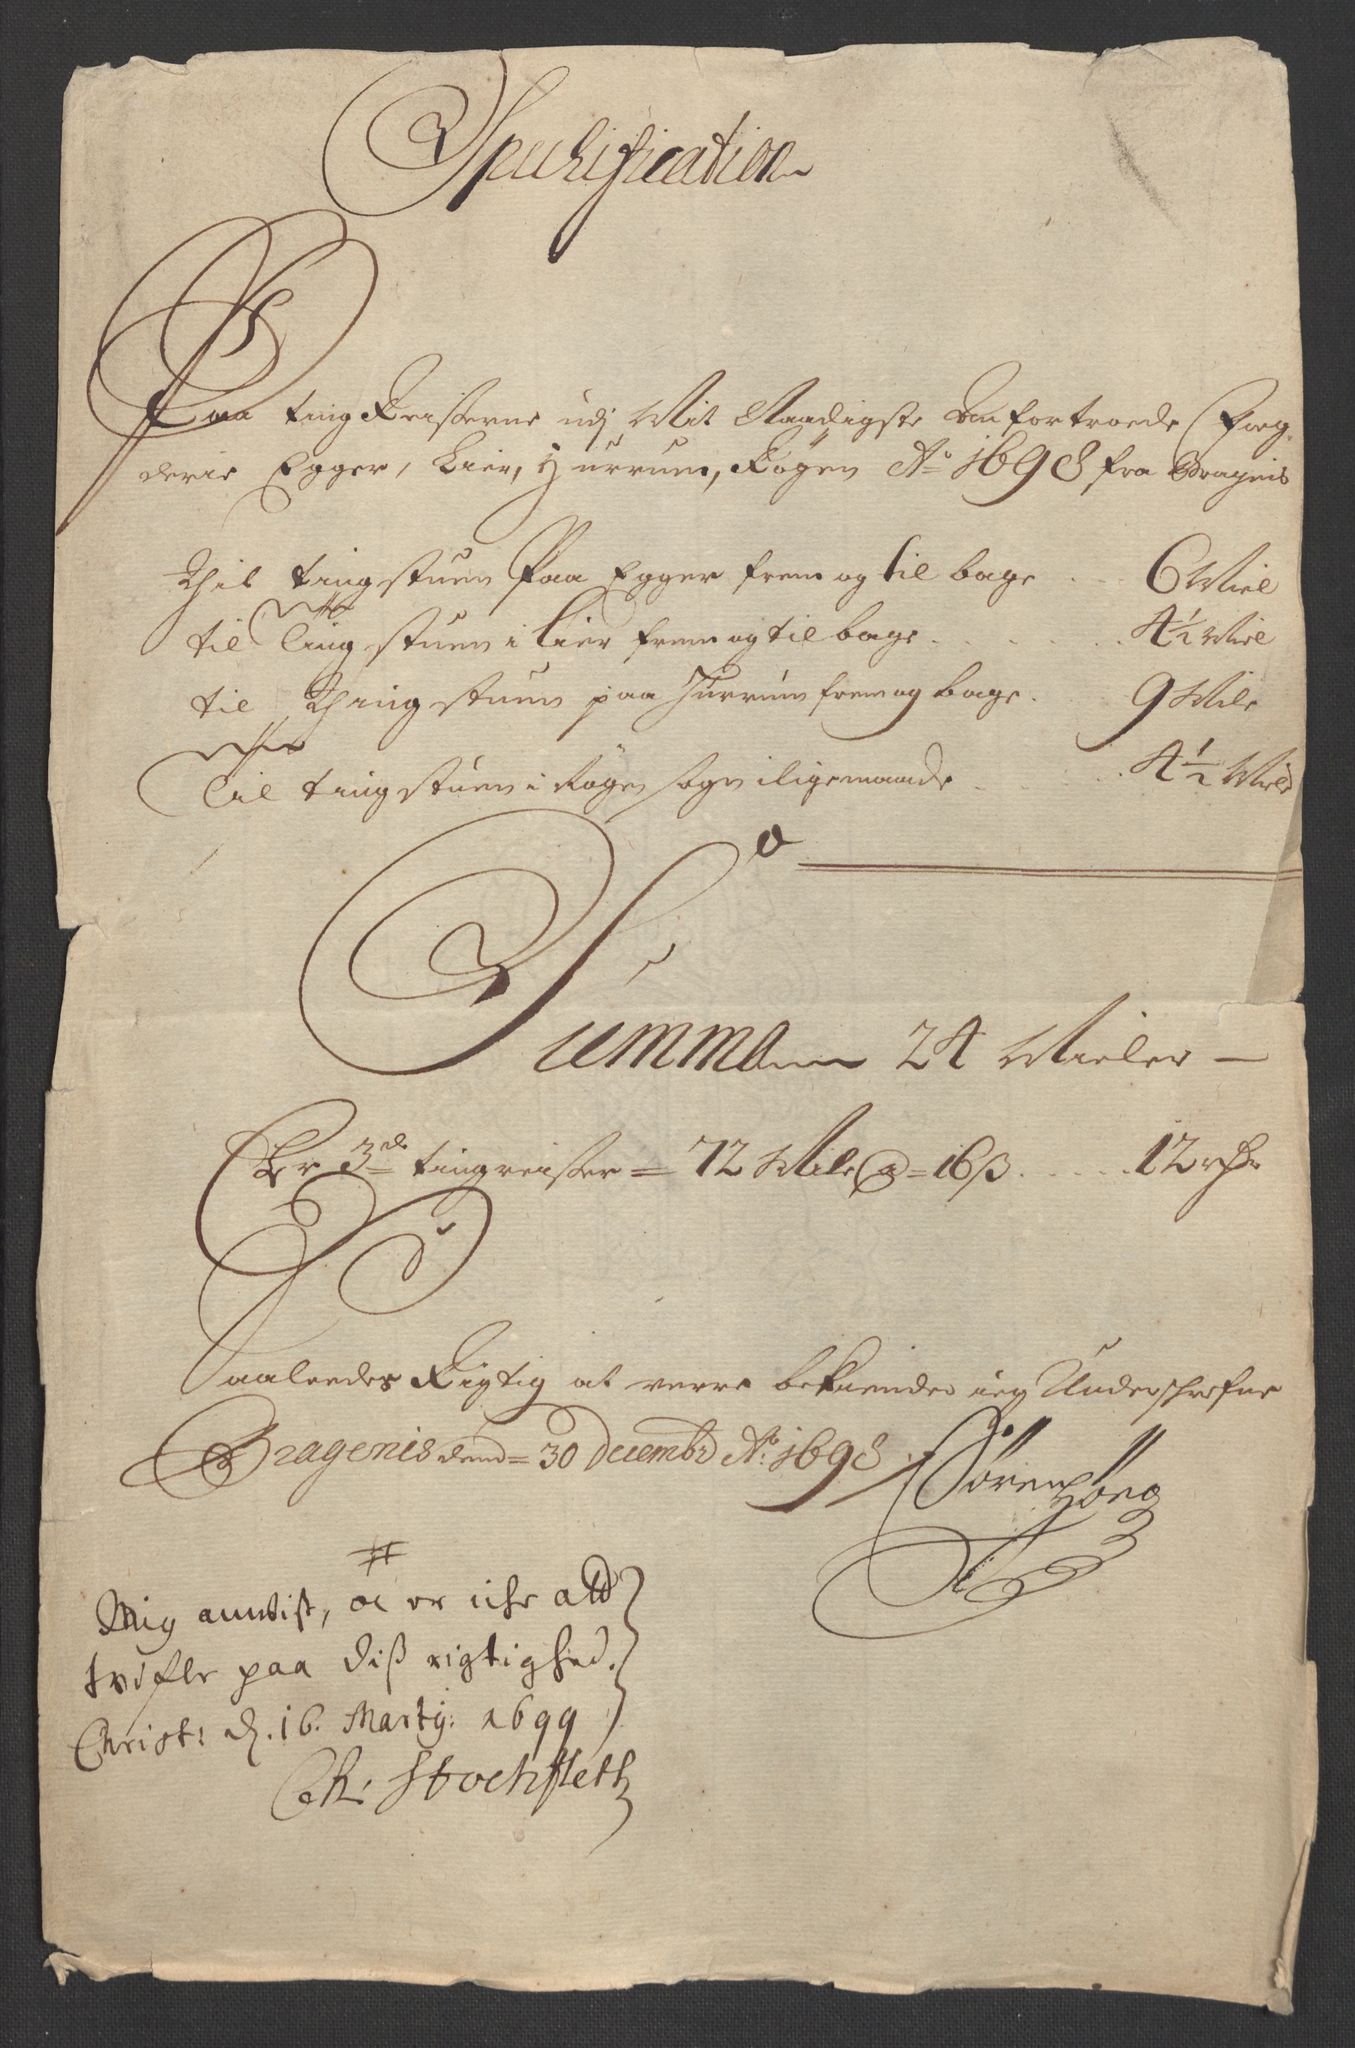 Specification
Paa ting Reisserne udj Mit Naadigste Anfortroede Fog-
derie Egger, Lier, Hurrum, Røgen Ao 1698 fra Bragnis
Thil tingstuen paa Egger frem og til bage 6 Miel
til Tingstuen i Lier frem og til bage 4½ Miel
til Thingstuen paa Hurrum frem og bage 9 Mile
Til tingstuen i Røgen sogn iligemaade 4½ Miele
Summa 24 Mieler
Er 3de tingreisser = 72 Mile @ = 16 ß 12 rdr
Saaleedes Rigtig at verre bekiender ieg Underschrefne
Bragenis denn = 30 Decembr Ao 1698
Søren Høeg
Mig anvist, oc er icke att
tvifle paa diss rigtighed.
Christ: d. 16. Martij: 1699
Ch: Stockfleth